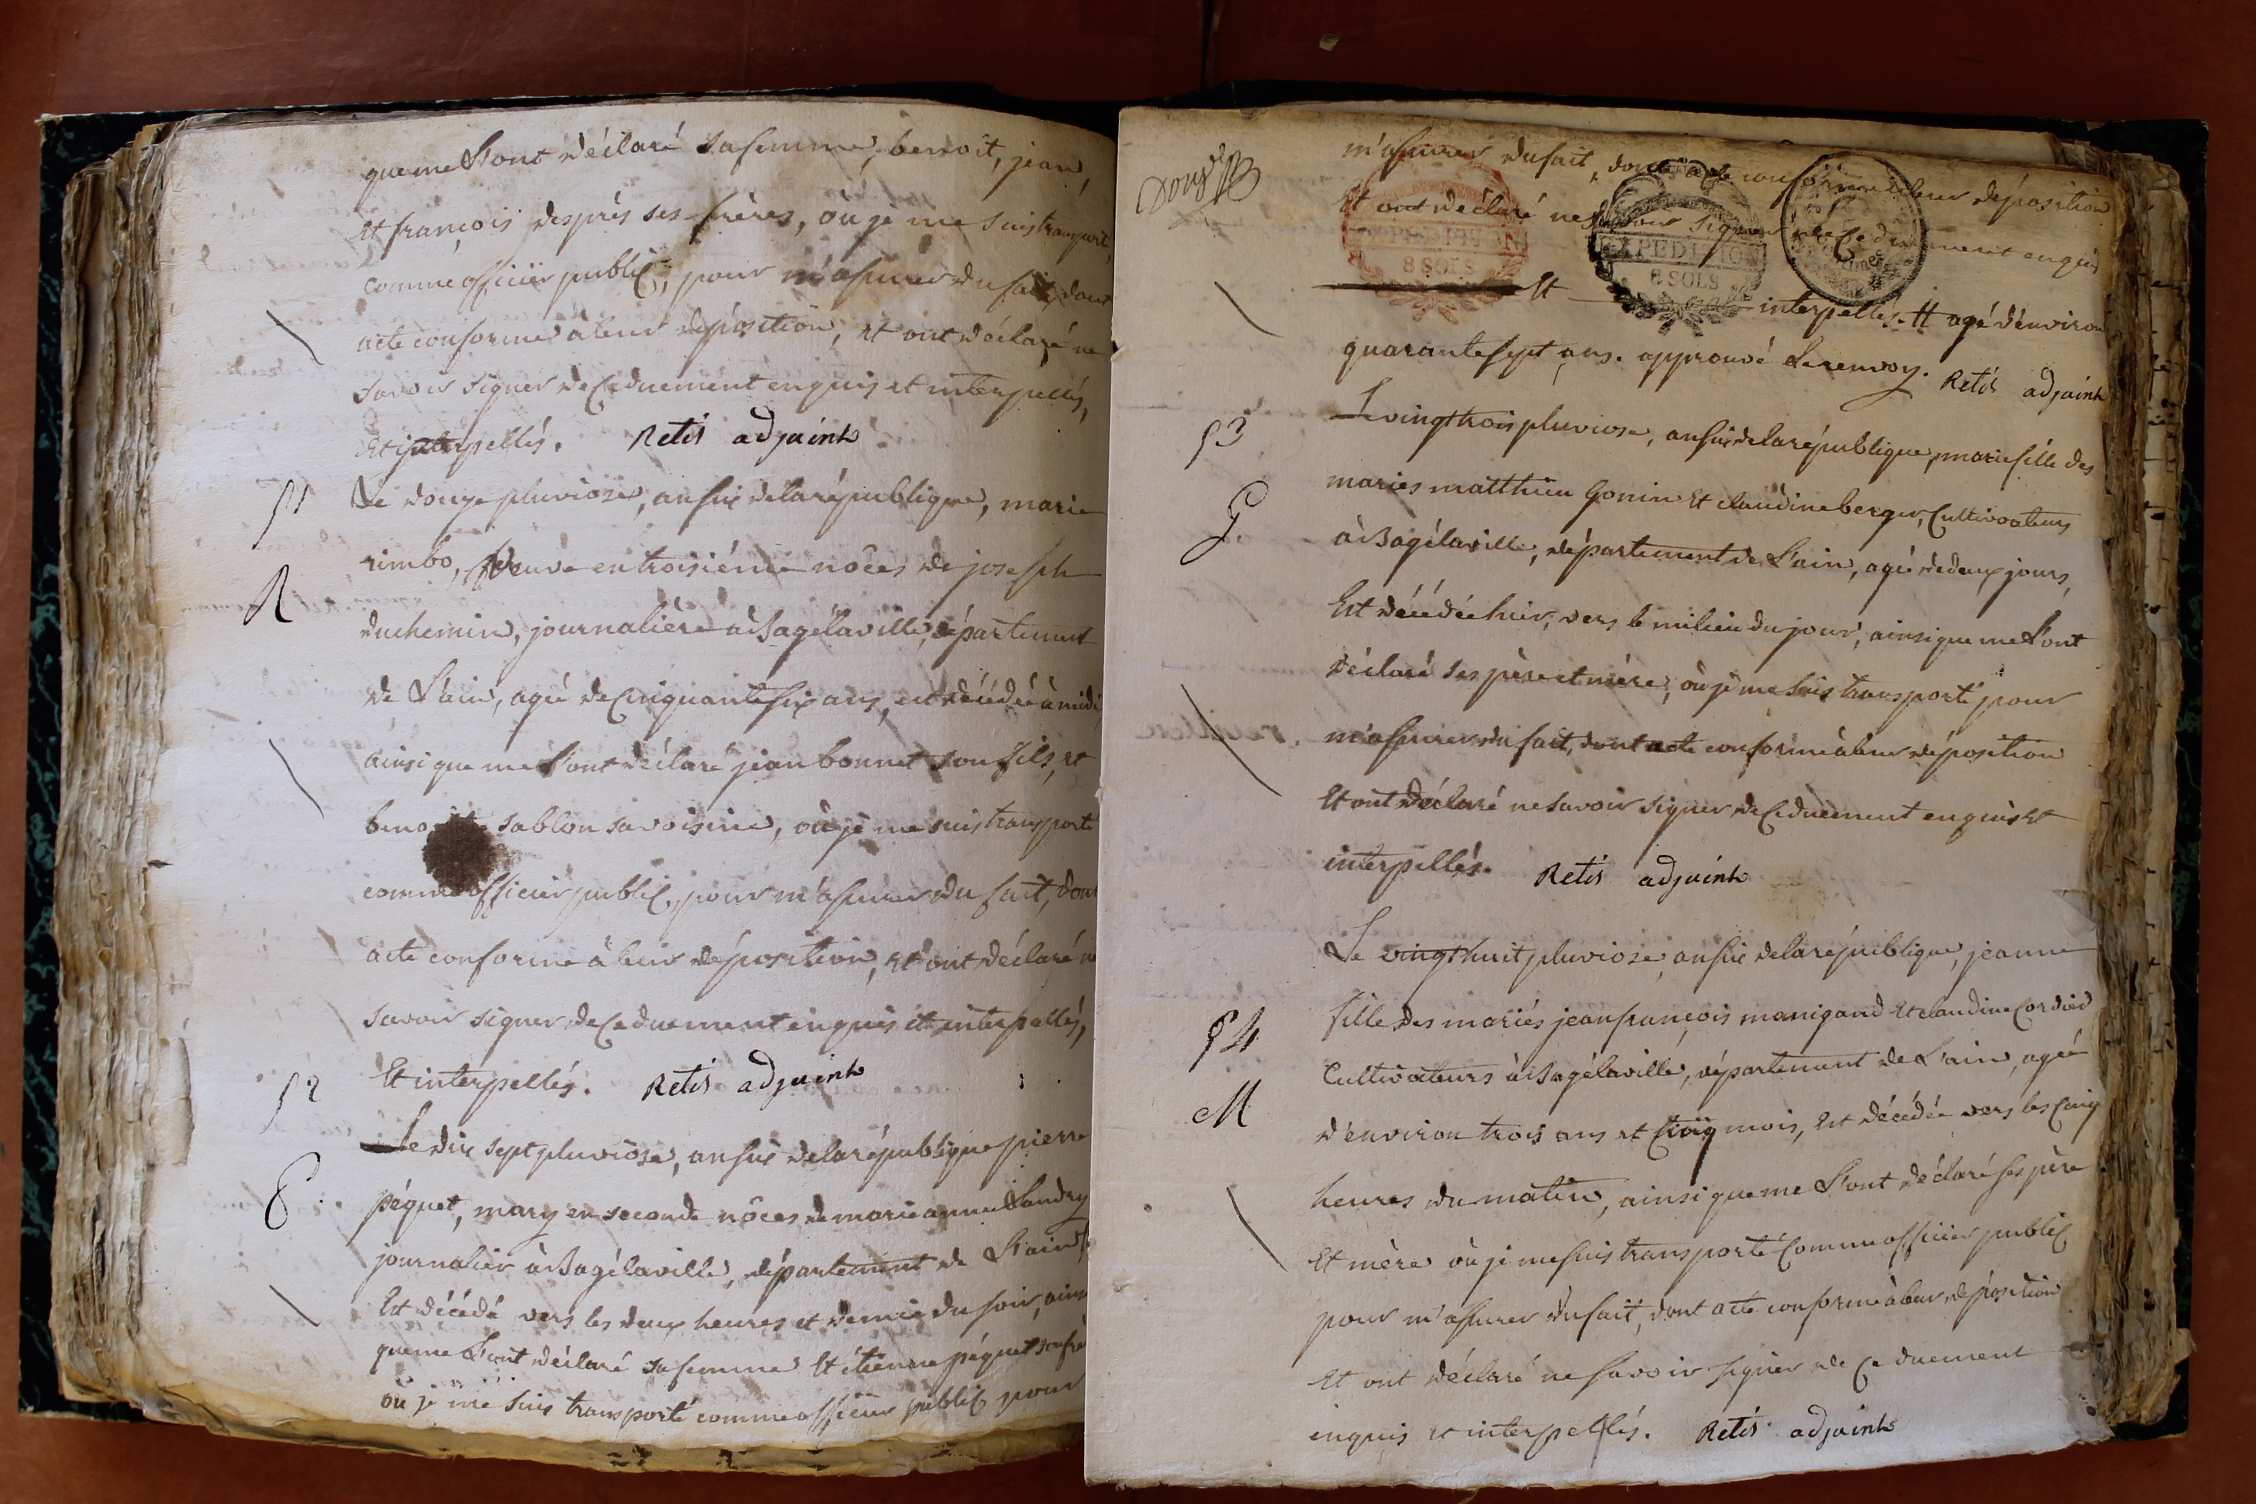 que me l'ont déclaré sa femme, benoit, jean,
et françois desprès ses frères, où je me suis transporté
comme officier public, pour m'assurer du fait, dont
acte conforme à leur déposition, et ont déclaré ne
savoir signer de ce duement enquis et interpellés,
et interpellés. Retis adjoint
51
Le douze pluviose, an six de la république, marie
rimbo, veuve en troisiéme nôces de joseph
R
duchemin, journalière à Bagé la ville, département
de L'ain, agée de cinquante six ans, est décédée à midi
ainsi que me l'ont déclaré jean bonnet son fils, et
sablon sa voisine, où je me suis transporté
comme officier public, pour m'assurer du fait, dont
acte conforme à leur déposition, et ont déclaré ne
savoir signer de ce duement enquis et interpellés,
et interpellés. Retis adjoint
52
Le dix sept pluviose, an six de la république pierre
P
péquet, mary en seconde nôces de marie anne Landry
journalier à Bagé la ville, département de L'ain,
Est décédé vers les deux heures et demie du soir, ainsi
que me l'ont déclaré sa femme et étienne péquet son frère
où je me suis transporté comme officier public pour
m'assurer du fait, dont acte conforme à leur déposition
Et ont déclaré ne savoir signer de ce duement enquis
EXPEDITION
8 SOLS
EXPEDITION
8 SOLS
Et interpellés. # agé d'environ
quarante sept ans. approuvé le renvoy. Retis adjoint
53
Le vingt trois pluviose, an six de la république, marie fille des
G.
mariés matthieu Gonin et claudine berger, cultivateurs
à Bagé la ville, département de L'ain, agée de deux jours,
Est décédée hier, vers le milieu du jour, ainsi que me l'ont
déclaré ses père et mère, où je me suis transporté pour
m'assurer du fait, dont acte conforme à leur déposition
Et ont déclaré ne savoir signer de ce duement enquis et
interpellés. Retis adjoint
Le vingt huit pluviose, an six de la république, jeanne
54
fille des mariés jean françois manigand et claudine Cordier
M
Cultivateurs à Bagé la ville, département de L'ain, agée
d'environ trois ans et cinq mois, est décédée vers les cinq
heures du matin, ainsi que me l'ont déclaré ses père
Et mère où je me suis transporté comme officier public
pour m'assurer du fait, dont acte conforme à leur déposition
Et ont déclaré ne savoir signer de ce duement
enquis et interpellés. Retis adjoint